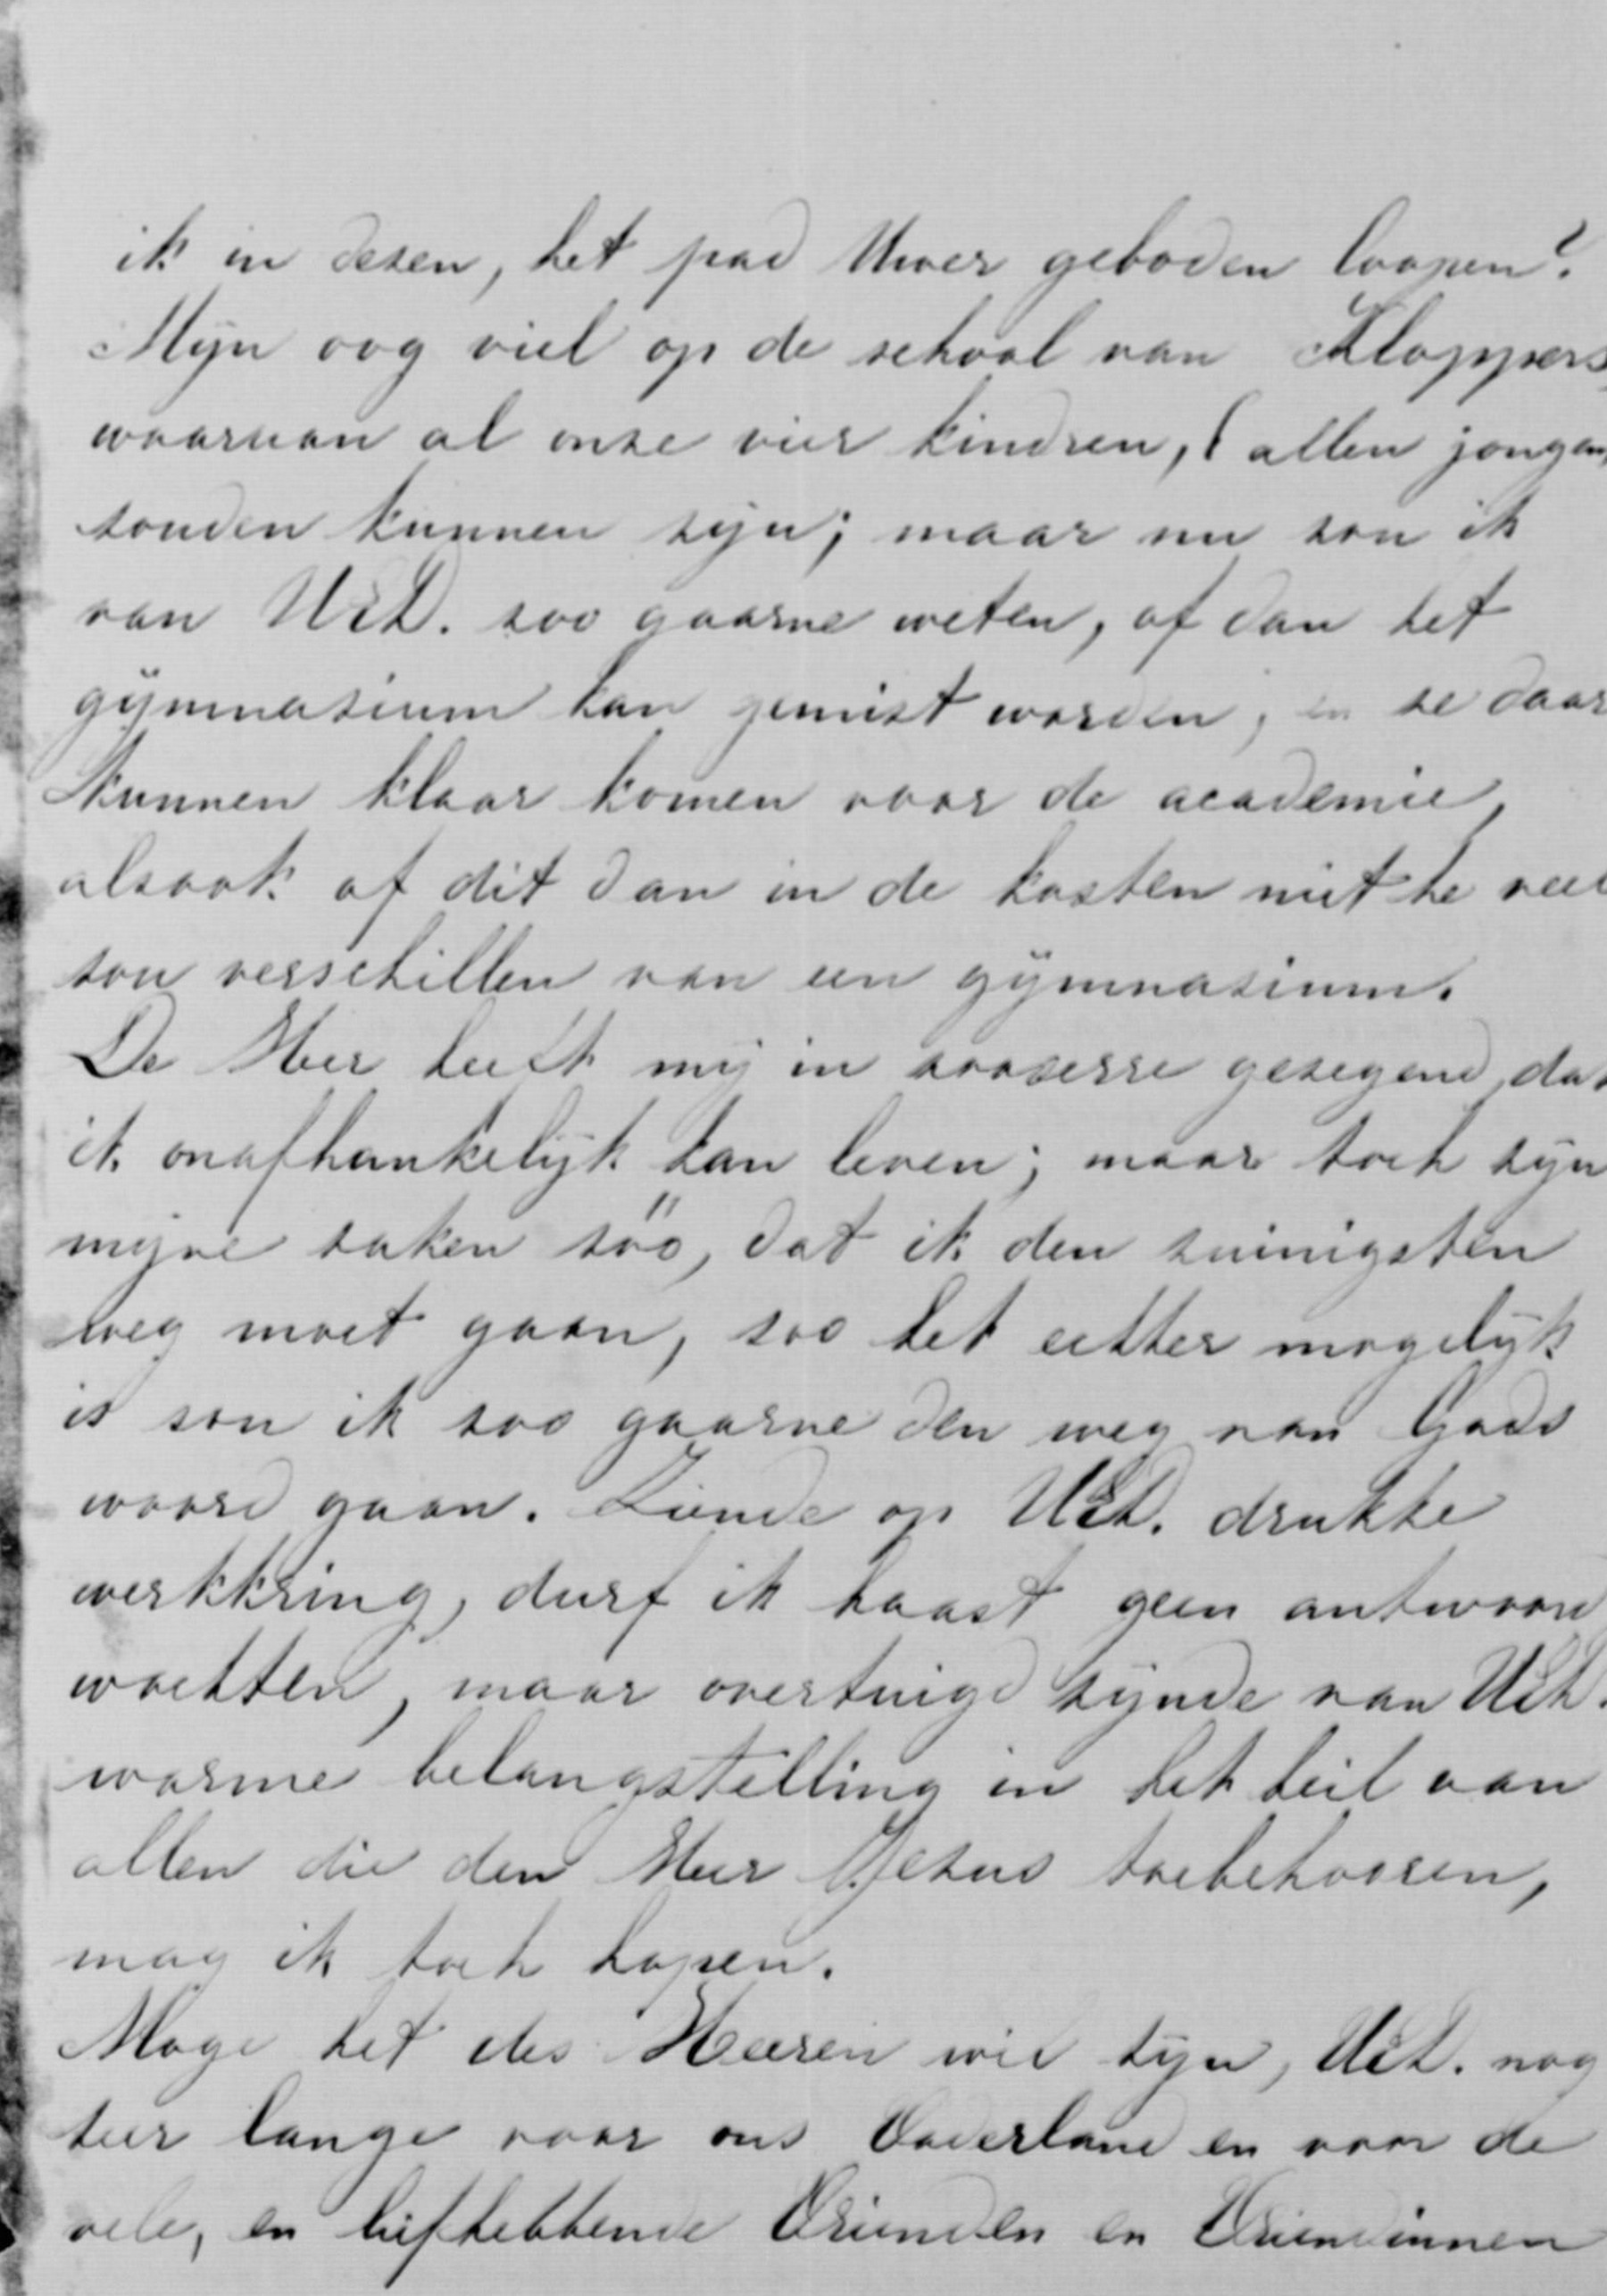 ik in dezen, het pad Uwer geboden loopen?
Mijn oog viel op de school van Kloppers
waaraan al onze vier kindren, (allen jongens
zouden kunnen zijn; maar nu zou ik
van UEd. zoo gaarne weten, of dan het
gymnasium kan gemist worden, en ze daar
kunnen klaar komen voor de academie,
alsook of dit dan in de kosten niet te veel
zou verschillen van een gymnasium.
De Heer heeft mij in zooverre gezegend, dat
ik onafhankelijk kan leven; maar toch zijn
mijne zaken zóó, dat ik den zuinigsten
weg moet gaan, zoo het echter mogelijk
is zou ik zoo gaarne den weg van Gods
woord gaan. Ziende op UEd. drukke
werkkring, durf ik haast geen antwoord
wachten, maar overtuigd zijnde van UEd.
warme belangstelling in het heil van
allen die den Heer Jezus toebehooren,
mag ik toch hopen.
Moge het des Heeren wil zijn, UEd. nog
zeer lange voor ons Vaderland en voor de
vele, en liefhebbende Vrienden en Vriendinnen